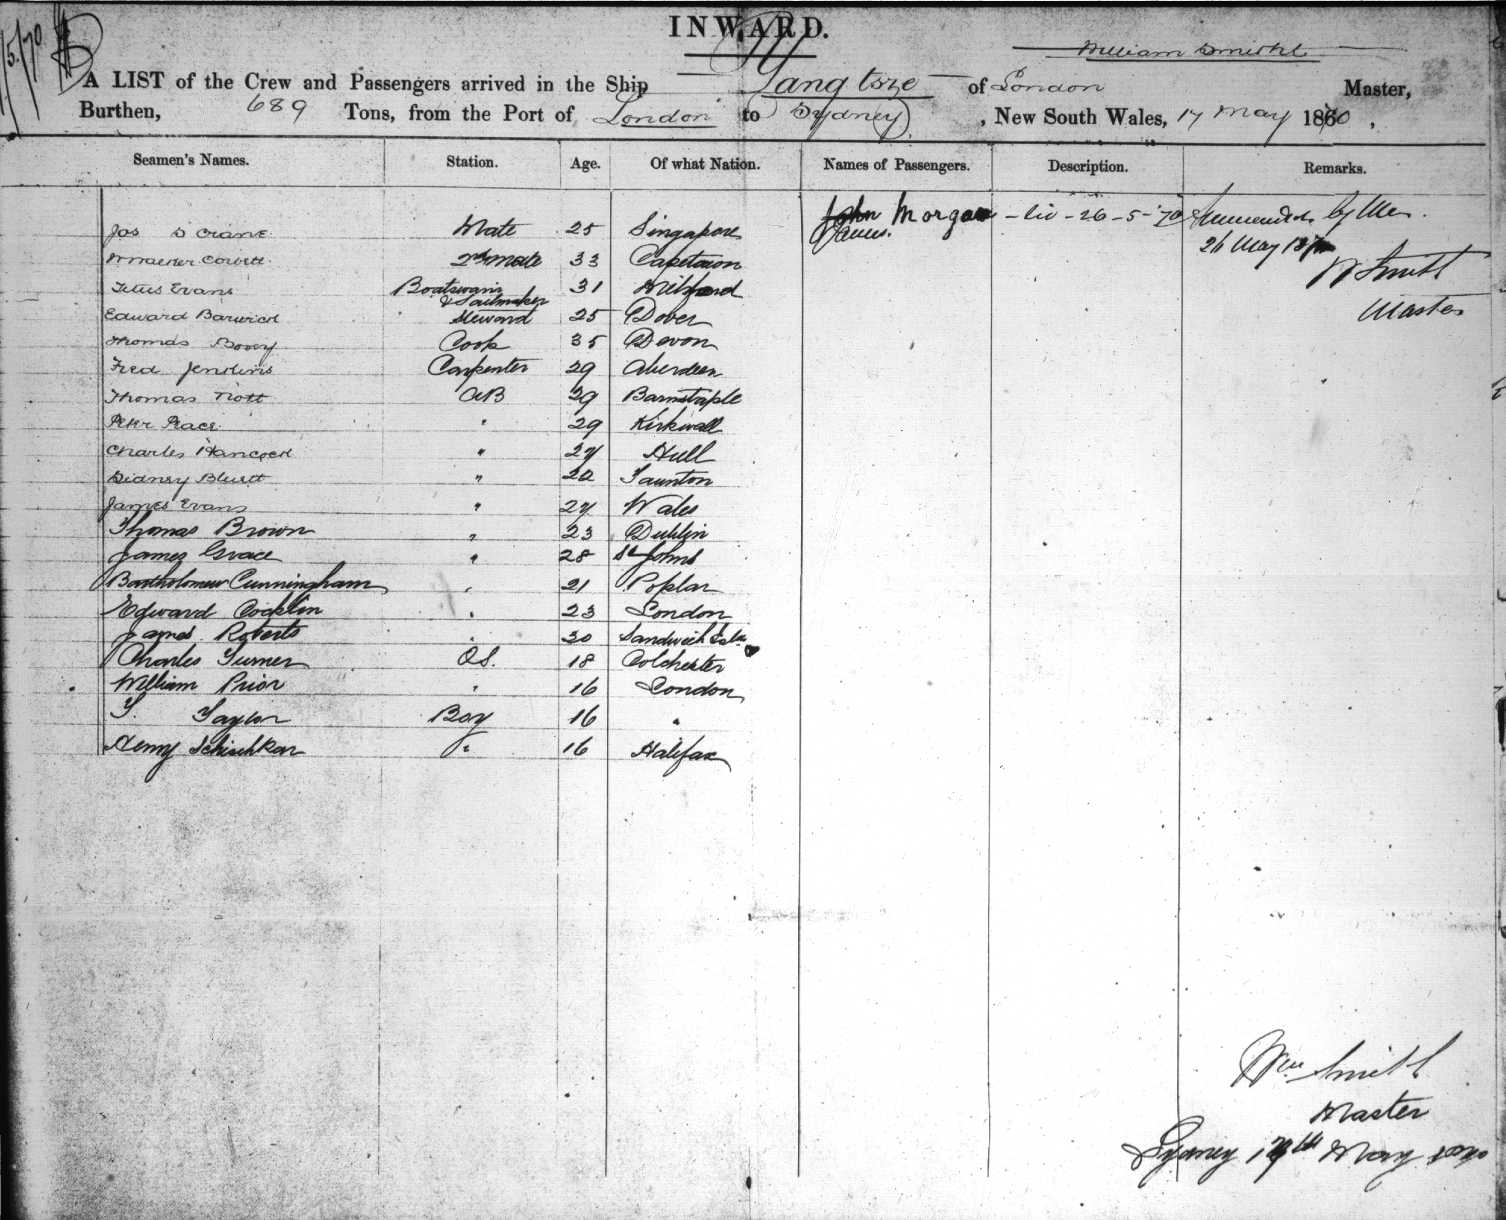 INWARD.
William Smith
A LIST of the Crew and Passengers arrived in the Ship Yangtsze of London Master,
Burthen, 689 Tons, from the Port of London to Sydney, New South Wales, 17 May 1870,
Seamen's Names. Station. Age. Of what Nation. Names of Passengers. Description. Remarks.
Jas D Crane Mate 25 Singapore John Morgan 26-5-70 by Me.
James.
Corbett 2nd Mate 33 Capetown 26 May 1870
Titus Evans Boatswain & Sailmaker 31 Milford W Smith
Edward Barwick Steward 25 Dover Master
Thomas Bovey Cook 35 Devon
Fred Jenkins Carpenter 29 Aberdeen
Thomas Trott AB 29 Barnstaple
Peter Peace " 29 Kirkwall
Charles Hancock " 27 Hull
Sidney Bluett " 22 Taunton
James Evans " 27 Wales
Thomas Brown " 23 Dublin
James Grace " 28 St Johns
Bartholomew Cunningham " 21 Poplar
Edward Cocklin " 23 London
James Roberts " 30 Sandwich Isls
Charles Turner OS. 18 Colchester
William Prior " 16 London
T. Taylor Boy 16 "
Henry Schischkar " 16 Halifax
Wm Smith
Master
Sydney 17th May 1870